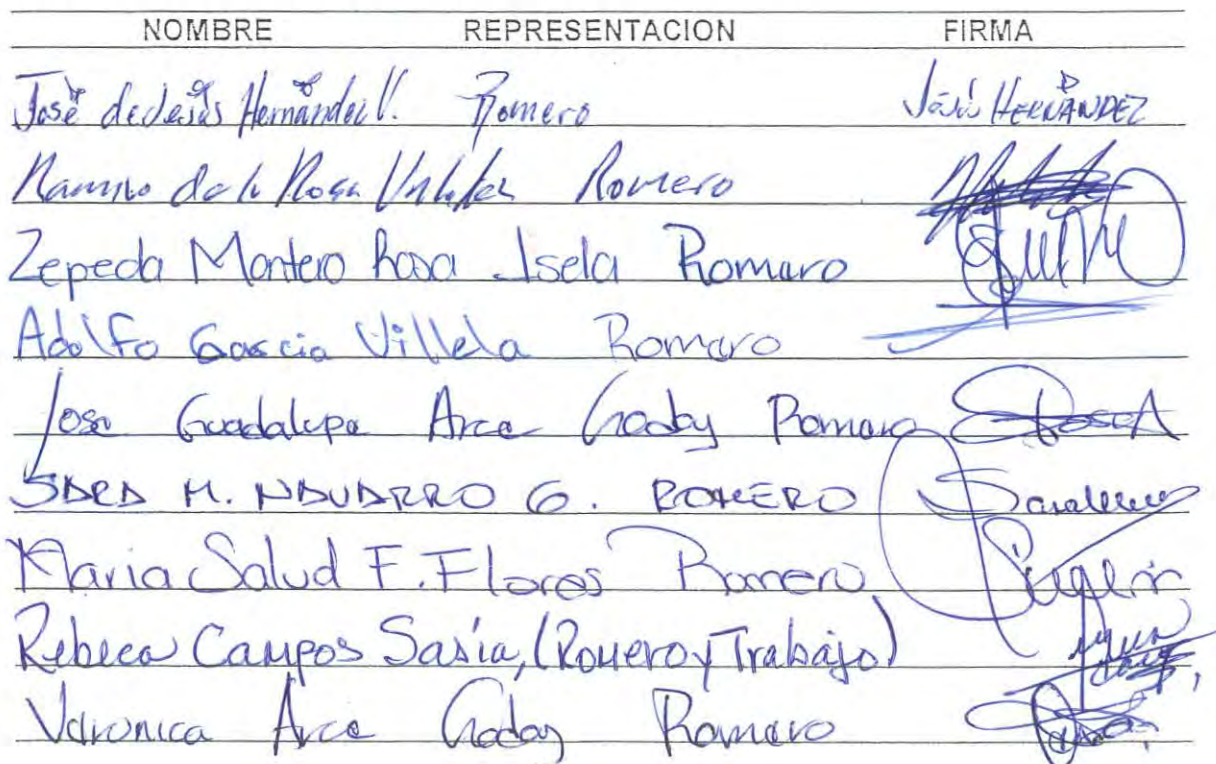 NOMBRE REPRESENTACION FIRMA
José de Jesús Hernández V. Romero Jesús HERNÁNDEZ
Ramiro de la Rosa Romero
Zepeda Montero Rosa Isela Romero
Adolfo Garcia Villela Romero
Jose Guadalupe Arce Godoy Romero
SARA M. NAVARRO G. ROMERO
Maria Salud F. Flores Romero
Rebeca Campos Sasía, (Romero y Trabajo)
Veronica Arce Godoy Romero